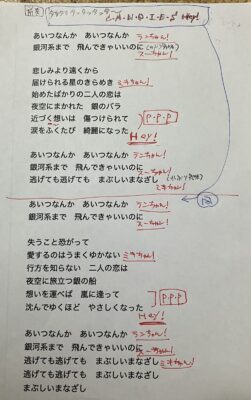 前奏 タタタタタタタンタンタン C・A・N・D・I・E・S Hey!
あいつなんか あいつなんか ランちゃん!
銀河系まで 飛んできゃいいのに スーちゃん!
悲しみより遠くから
届けられる星のきらめき ミキちゃん!
始めたばかりの二人の恋は
夜空にまかれた 銀のバラ
近づく想いは 傷つけられて P.P.P
涙をふくたび 綺麗になった Hey!
あいつなんか あいつなんか ランちゃん!
銀河系まで 飛んできゃいいのに スーちゃん!
逃げても逃げても まぶしいまなざし ミキちゃん!
あいつなんか あいつなんか ランちゃん!
銀河系まで 飛んできゃいいのに スーちゃん!
失うこと恐がって
愛するのはうまくゆかない ミキちゃん!
行方を知らない 二人の恋は
夜空に旅立つ銀の船
想いを運べば 嵐に逢って P.P.P
沈んでゆくほど やさしくなった Hey!
あいつなんか あいつなんか ランちゃん!
銀河系まで 飛んできゃいいのに スーちゃん!
逃げても逃げても まぶしいまなざし ミキちゃん!
逃げても逃げても まぶしいまなざし
まぶしいまなざし